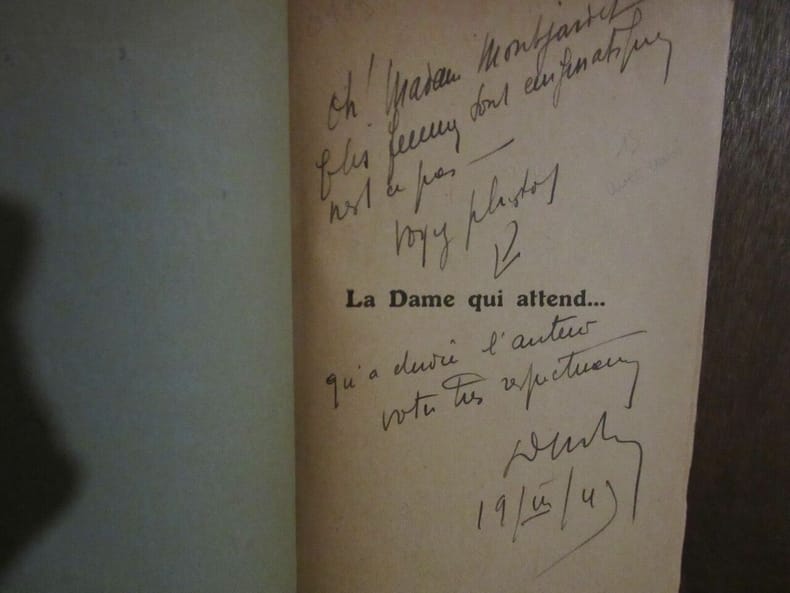 Oh! Madame Montjardet
les femmes sont énigmatiques
n'est ce pas —
voyez plutôt
La Dame qui attend...
qu'a dédié l'auteur
votre très respectueux
19/III/4